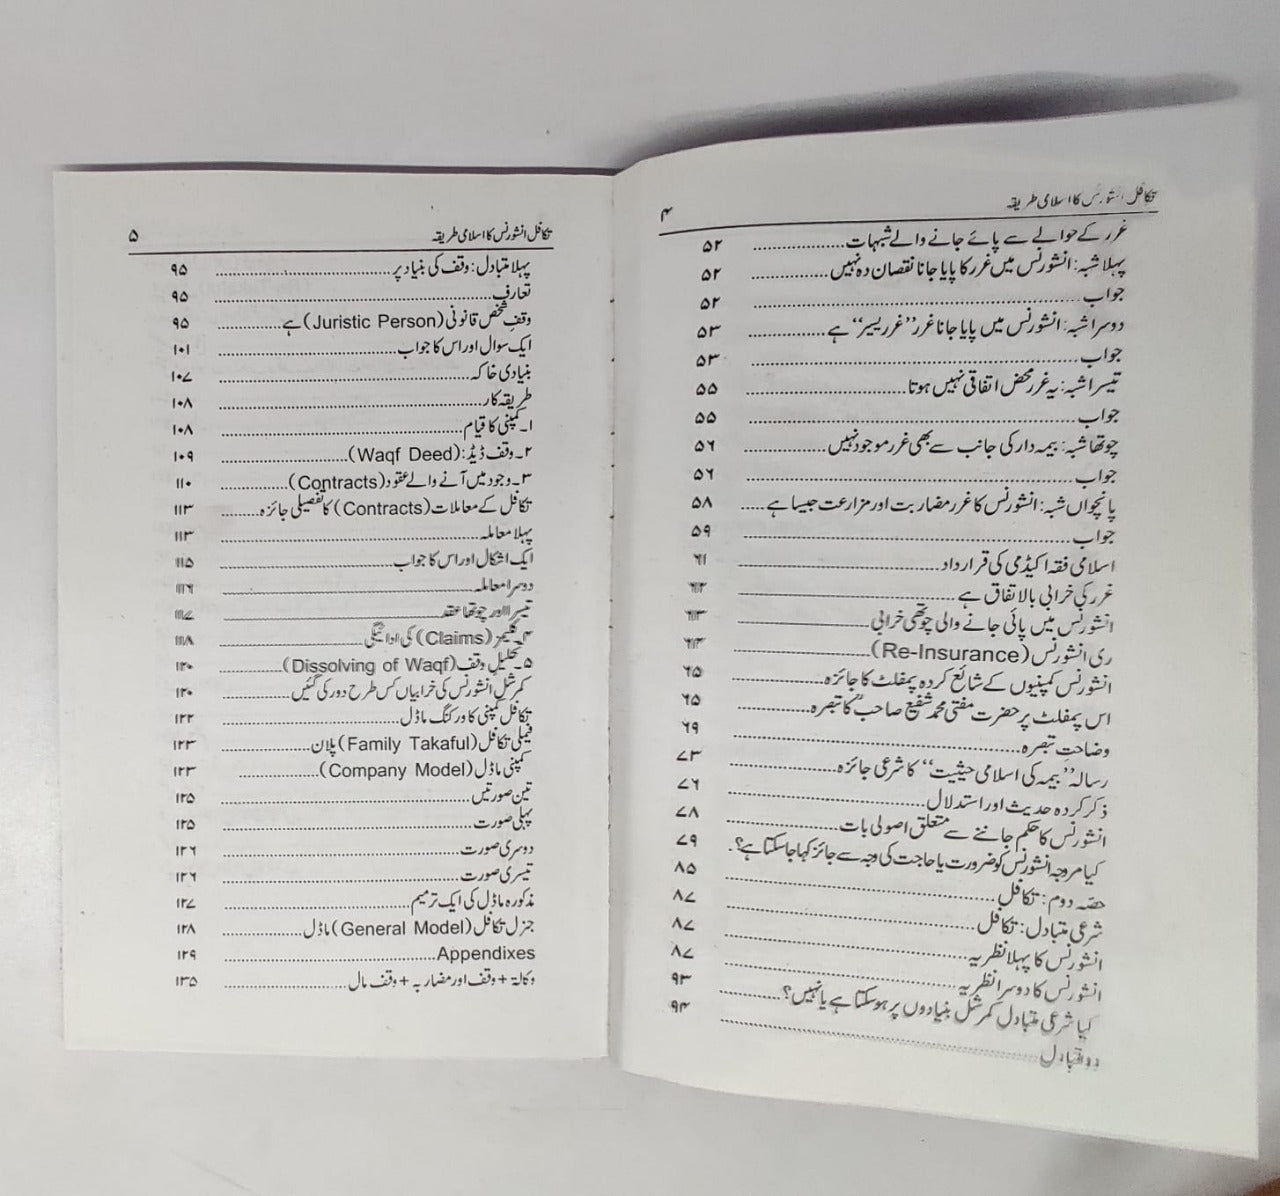 تکافل انشورنس کا اسلامی طریقہ ۴
غرر کے حوالے سے پائے جانے والے شبہات ۵۲
پہلا شبہ: انشورنس میں غرر کا پایا جانا نقصان دہ نہیں ۵۲
جواب ۵۲
دوسرا شبہ: انشورنس میں پایا جانا غرر ”غرر یسیر“ ہے ۵۳
جواب ۵۳
تیسرا شبہ: یہ غرر محض اتفاقی نہیں ہوتا ۵۵
جواب ۵۵
چوتھا شبہ: بیمہ دار کی جانب سے بھی غرر موجود نہیں ۵۶
جواب ۵۶
پانچواں شبہ: انشورنس کا غرر مضاربت اور مزارعت جیسا ہے ۵۸
جواب ۵۹
اسلامی فقہ اکیڈمی کی قرارداد ۶۱
غرر کی خرابی بالاتفاق ہے
انشورنس میں پائی جانے والی چوتھی خرابی ۶۳
ری انشورنس (Re-Insurance) ۶۳
انشورنس کمپنیوں کے شائع کردہ پمفلٹ کا جائزہ ۶۵
اس پمفلٹ پر حضرت مفتی محمد شفیع صاحبؒ کا تبصرہ ۶۵
وضاحت تبصرہ ۶۹
رسالہ ”بیمہ کی اسلامی حیثیت“ کا شرعی جائزہ ۷۳
ذکر کردہ حدیث اور استدلال ۷۶
انشورنس کا حکم جاننے سے متعلق اصولی بات ۷۸
کیا مروجہ انشورنس کو ضرورت یا حاجت کی وجہ سے جائز کہا جا سکتا ہے؟ ۷۹
حصّہ دوم: تکافل ۸۵
شرعی متبادل: تکافل ۸۷
انشورنس کا پہلا نظریہ ۸۷
انشورنس کا دوسرا نظریہ ۸۷
کیا شرعی متبادل کمرشل بنیادوں پر ہو سکتا ہے یا نہیں؟ ۹۳
دو متبادل ۹۴
تکافل انشورنس کا اسلامی طریقہ ۵
پہلا متبادل: وقف کی بنیاد پر ۹۵
تعارف ۹۵
وقف شخص قانونی (Juristic Person) ہے ۹۵
ایک سوال اور اس کا جواب ۱۰۱
بنیادی خاکہ ۱۰۷
طریقہ کار ۱۰۸
۱۔ کمپنی کا قیام ۱۰۸
۲۔ وقف ڈیڈ: (Waqf Deed) ۱۰۹
۳۔ وجود میں آنے والے عقود (Contracts) ۱۱۰
تکافل کے معاملات (Contracts) کا تفصیلی جائزہ ۱۱۳
پہلا معاملہ ۱۱۳
ایک اشکال اور اس کا جواب ۱۱۵
دوسرا معاملہ ۱۱۶
تیسرا اور چوتھا عقد ۱۱۷
۴۔ کلیمز (Claims) کی ادائیگی ۱۱۸
۵۔ تحلیلِ وقف (Dissolving of Waqf) ۱۲۰
کمرشل انشورنس کی خرابیاں کس طرح دور کی گئیں ۱۲۰
تکافل کمپنی کا ورکنگ ماڈل ۱۲۲
فیملی تکافل (Family Takaful) پلان ۱۲۳
کمپنی ماڈل (Company Model) ۱۲۳
تین صورتیں ۱۲۵
پہلی صورت ۱۲۵
دوسری صورت ۱۲۶
تیسری صورت ۱۲۶
مذکورہ ماڈل کی ایک ترمیم ۱۲۷
جنرل تکافل (General Model) ماڈل ۱۲۸
Appendixes ۱۲۹
وکالۃ + وقف اور مضاربہ + وقف مال ۱۳۵